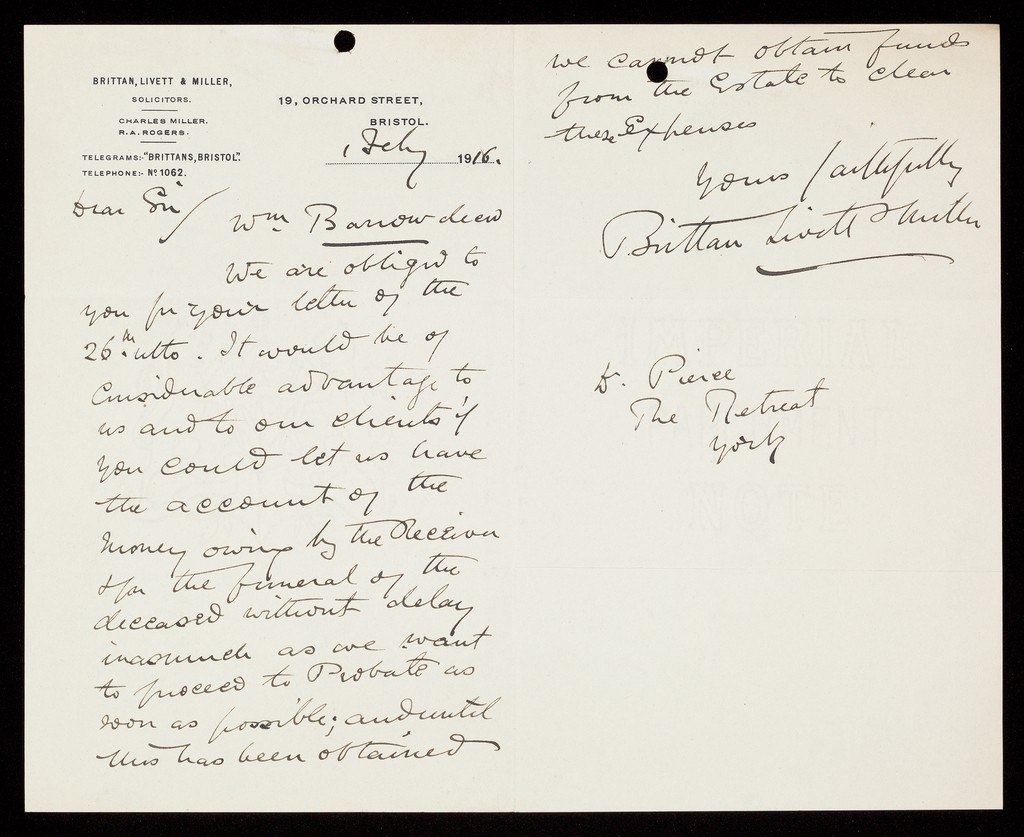 BRITTAN, LIVETT & MILLER,
SOLICITORS.
CHARLES MILLER.
R. A. ROGERS.
TELEGRAMS:- "BRITTANS, BRISTOL".
TELEPHONE:- No 1062.
19, ORCHARD STREET,
BRISTOL.
1 Feby 1916.
Dear Sir/
Wm Barrow deced
We are obliged to
you for your letter of the
26th ulto. It would be of
Considerable advantage to
us and to our clients if
you could let us have
the account of the
money owing by the Receiver
& for the funeral of the
deceased without delay
inasmuch as we want
to proceed to Probate as
soon as possible; and until
this has been obtained
we cannot obtain funds
from the Estate to clear
these Expenses
Yours faithfully
Brittan Livett & Miller
Dr. Pierce
The Retreat
York